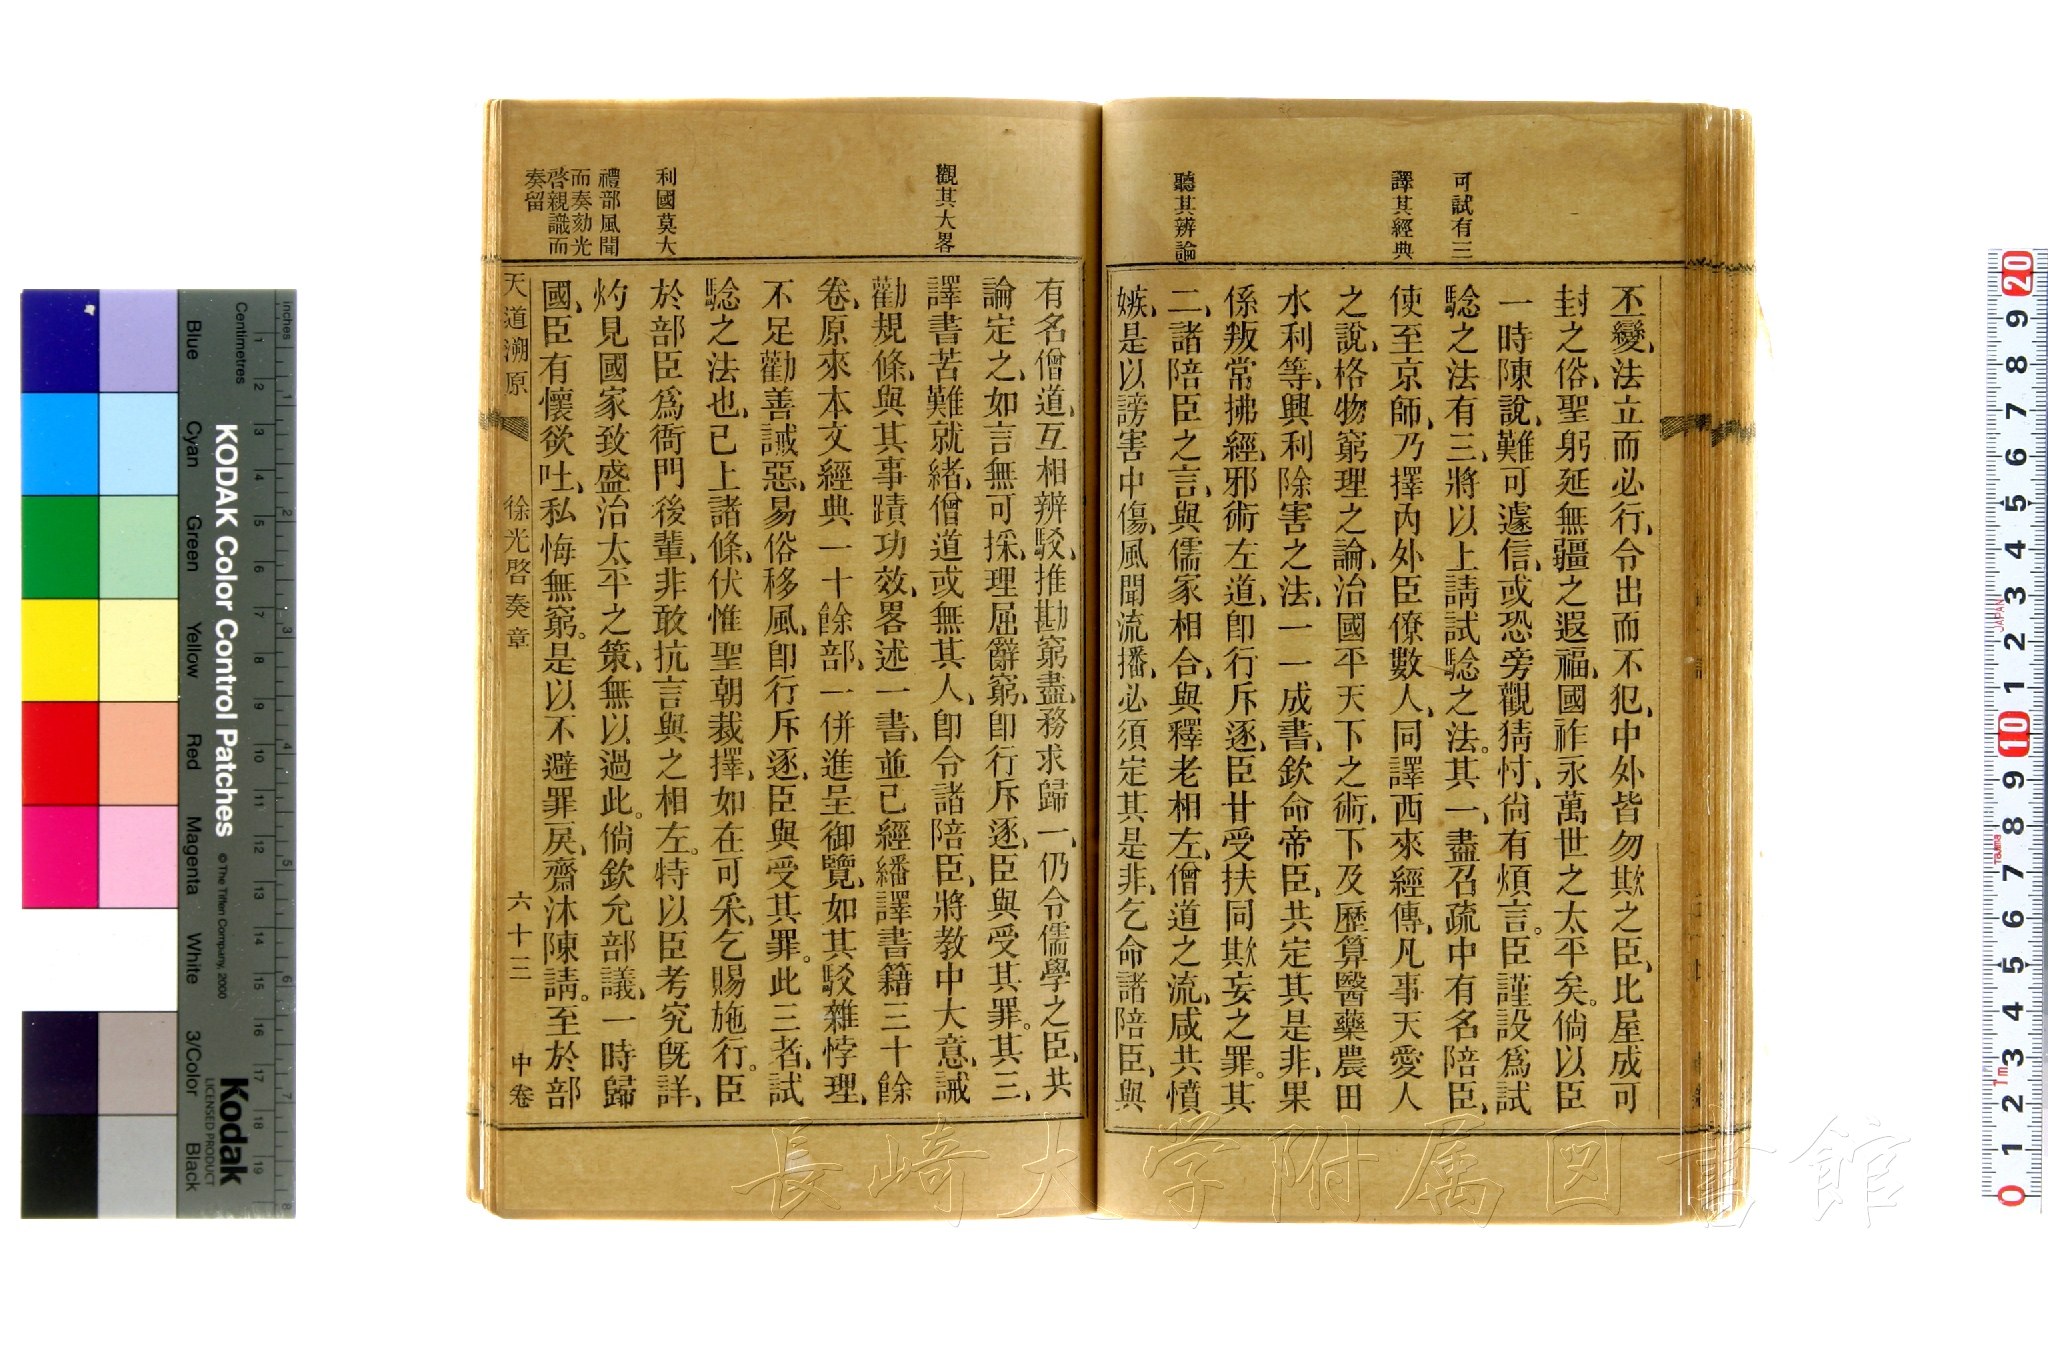 可試有三
譯其經典
聽其辨論
丕變、法立而必行、令出而不犯、中外皆勿欺之臣、比屋成可
封之俗、聖躬延無疆之遐福、國祚永萬世之太平矣。倘以臣
一時陳說、難可遽信、或恐旁觀猜忖、尙有煩言。臣謹設爲試
騐之法有三、將以上請試騐之法。其一、盡召疏中有名陪臣、
使至京師、乃擇內外臣僚數人、同譯西來經傳、凡事天愛人
之說、格物窮理之論、治國平天下之術、下及歷算醫藥農田
水利等、興利除害之法、一一成書、欽命帝臣、共定其是非、果
係叛常拂經、邪術左道、卽行斥逐、臣甘受扶同欺妄之罪。其
二、諸陪臣之言、與儒家相合、與釋老相左、僧道之流、咸共憤
嫉、是以謗害中傷、風聞流播、必須定其是非、乞命諸陪臣、與
觀其大畧
利國莫大
禮部風聞
而奏劾光
啓親識而
奏留
有名僧道、互相辨駁、推勘窮盡、務求歸一、仍令儒學之臣、共
論定之、如言無可採、理屈辭窮、卽行斥逐、臣與受其罪。其三、
譯書苦難就緒、僧道或無其人、卽令諸陪臣、將教中大意、誡
勸規條、與其事蹟功效、畧述一書、並已經繙譯書籍三十餘
卷、原來本文經典一十餘部、一併進呈御覽、如其駁雜悖理、
不足勸善誡惡、易俗移風、卽行斥逐、臣與受其罪。此三者、試
騐之法也、已上諸條、伏惟聖朝裁擇、如在可采、乞賜施行。臣
於部臣爲衙門後輩、非敢抗言與之相左。特以臣考究旣詳、
灼見國家致盛治太平之策、無以過此。倘欽允部議、一時歸
國、臣有懷欲吐、私悔無窮。是以不避罪戾、齋沐陳請。至於部
天道溯原 徐光啓奏章 六十三 中卷
長崎大学附属図書館
KODAK Color Control Patches
© The Tiffen Company, 2000
Kodak
LICENSED PRODUCT
Inches
Centimetres
Blue
Cyan
Green
Yellow
Red
Magenta
White
3/Color
Black
1 2 3 4 5 6 7 8 9 10 11 12 13 14 15 16 17 18 19
1 2 3 4 5 6 7 8
0 1 2 3 4 5 6 7 8 9 10 1 2 3 4 5 6 7 8 9 20
JAPAN